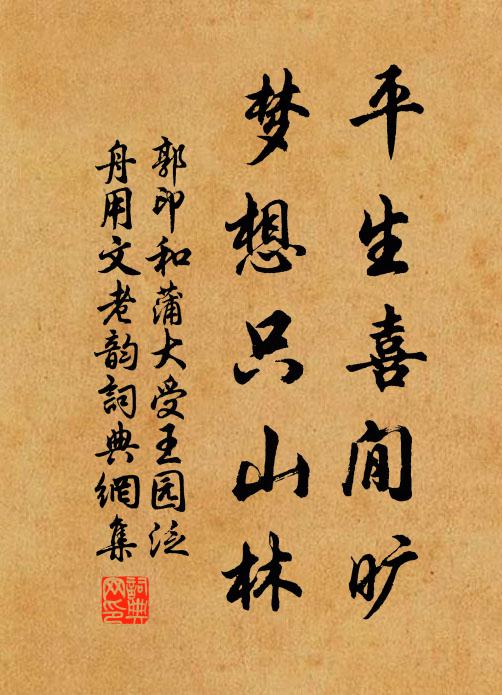 平生喜闲旷
梦想只山林
郭印和蒲大受王园泛
舟用文老韵词典網集
詞典網印